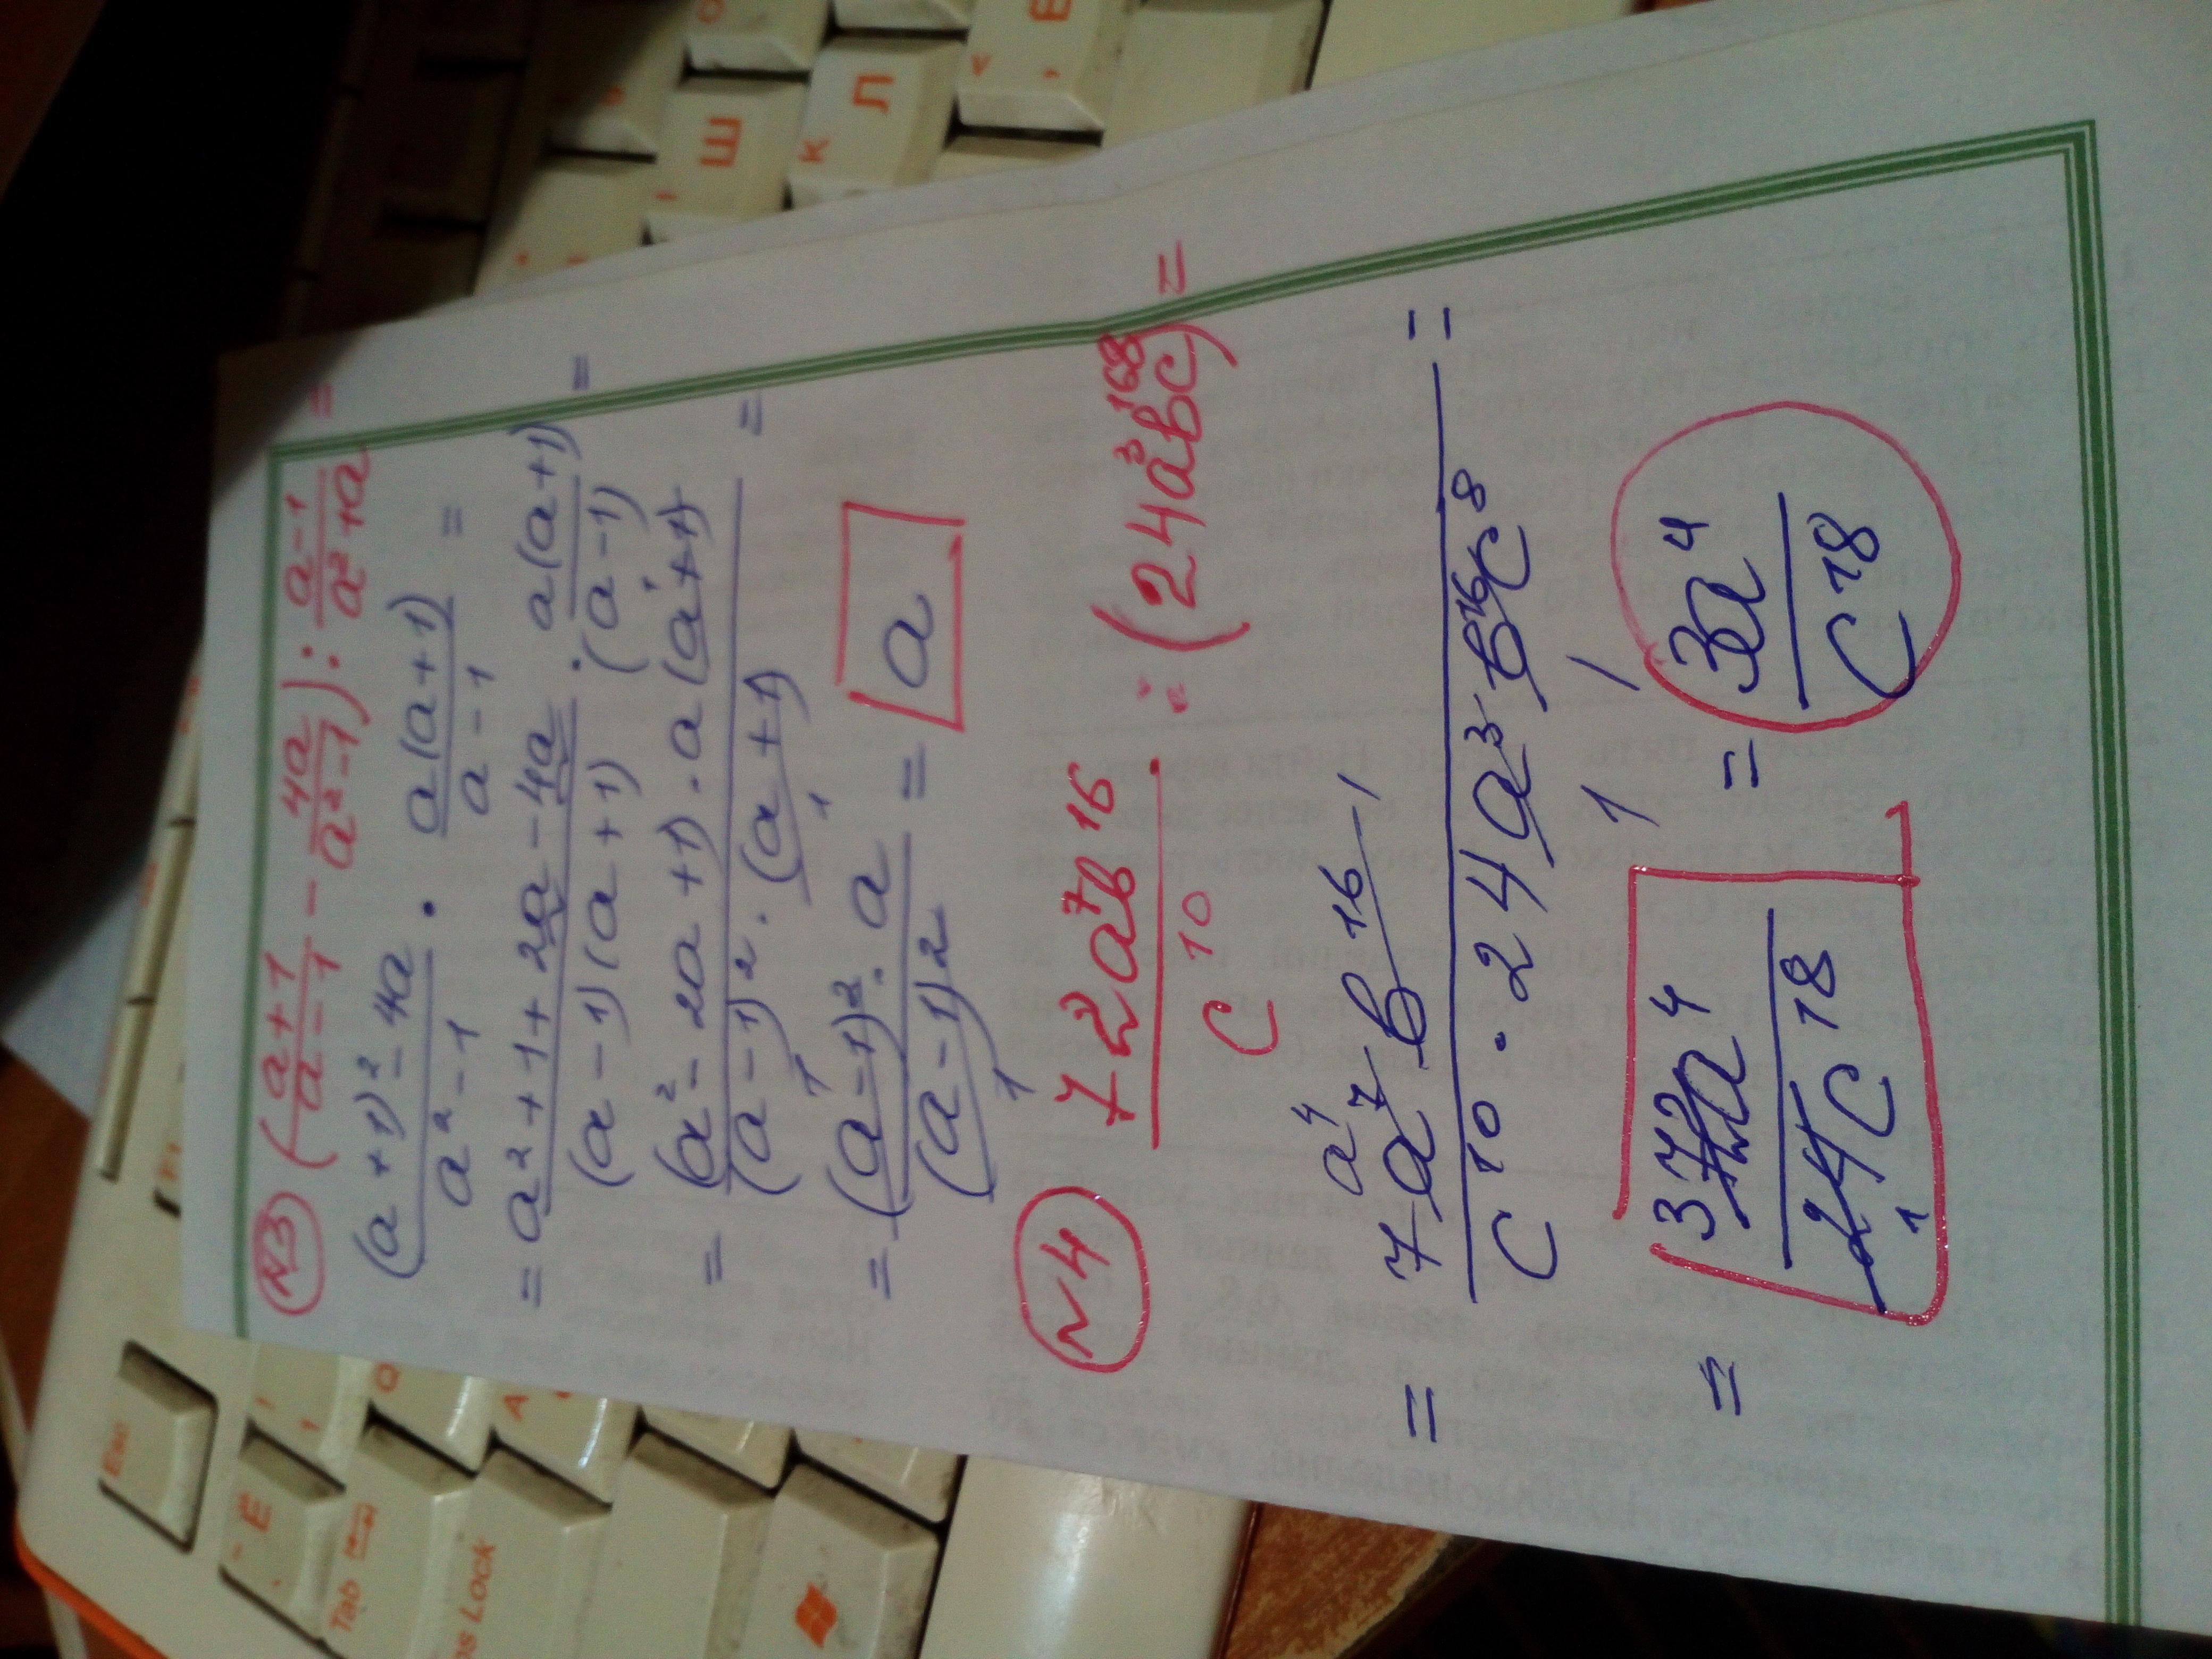 N3 ((a+1)/(a-1) - 4a/(a²-1)) : (a-1)/(a²+a) =
((a+1)² - 4a)/(a²-1) · a(a+1)/(a-1) =
= (a²+1+2a-4a)/((a-1)(a+1)) · a(a+1)/(a-1) =
= (a²-2a+1)·a(a+1)/((a-1)²·(a+1)) =
= (a-1)²·a/(a-1)² = a
N4 72a⁷в¹⁶/c¹⁰ : (24a³в¹⁶c⁸) =
= 7a⁷в¹⁶/(c¹⁰·24a³в¹⁶c⁸) =
= 72a⁴/(24c¹⁸) = 3a⁴/c¹⁸
Esc
Ё
Tab
Q
A
Ш
К
Л